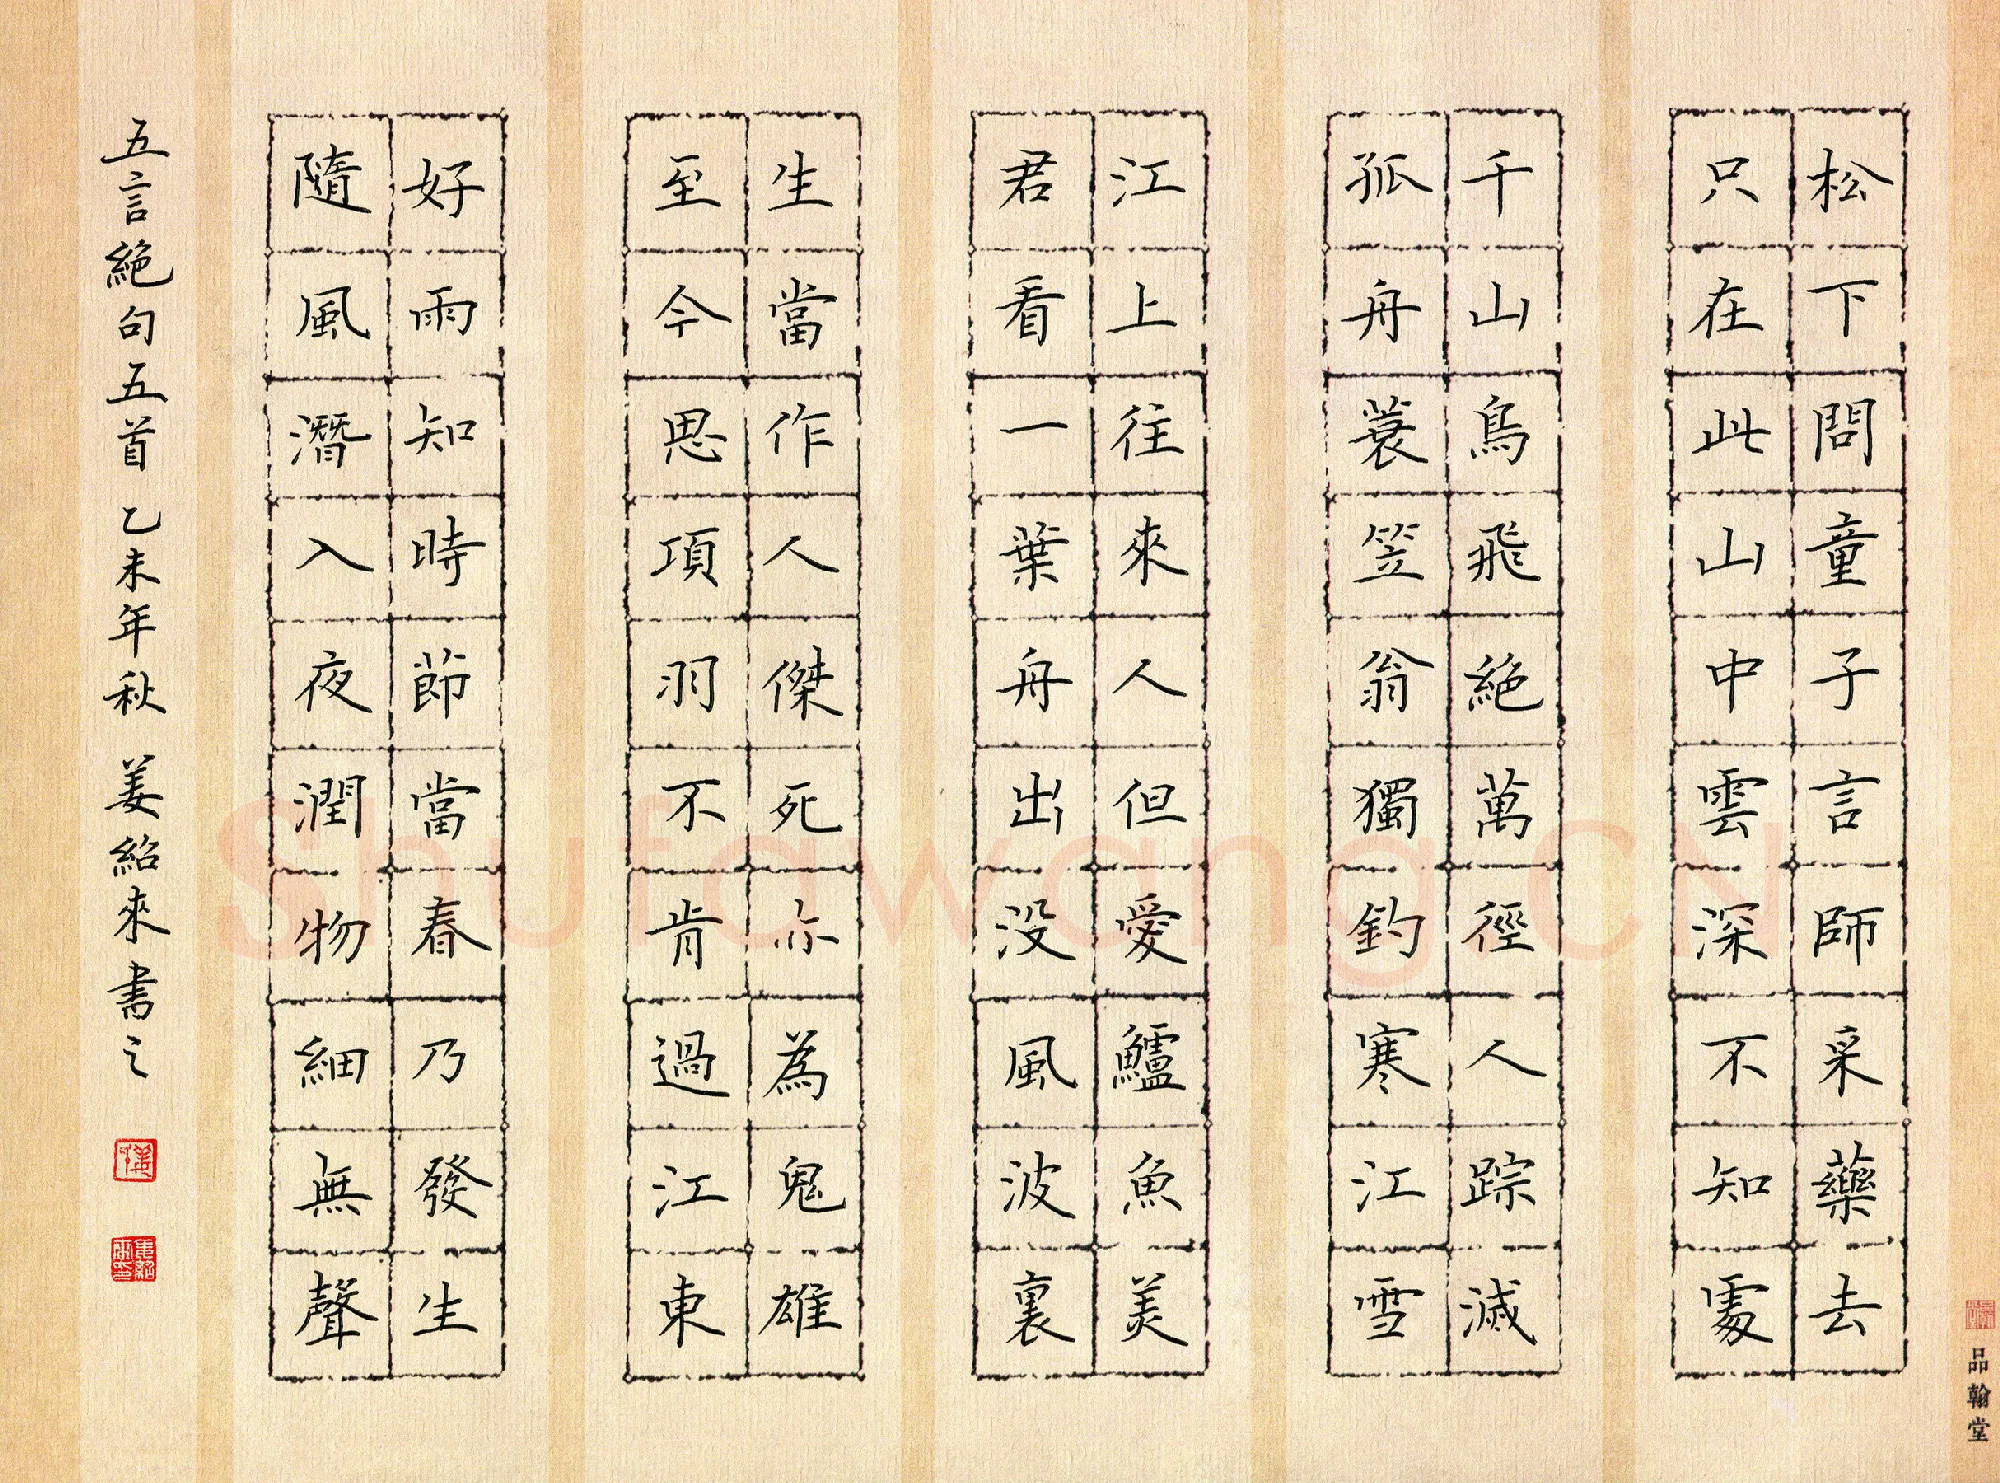 松下問童子言師采藥去
只在此山中雲深不知處
千山鳥飛絕萬徑人踪滅
孤舟蓑笠翁獨釣寒江雪
江上往來人但愛鱸魚美
君看一葉舟出没風波裏
生當作人傑死亦為鬼雄
至今思項羽不肯過江東
好雨知時節當春乃發生
隨風潛入夜潤物細無聲
五言絕句五首 乙未年秋 姜紹來書之
品翰堂
Shufawang.CN